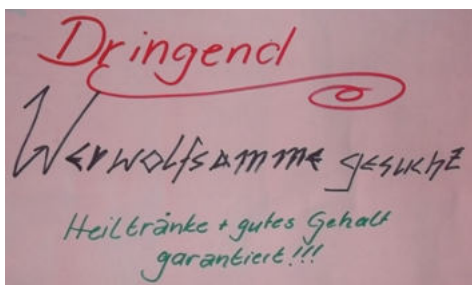 Dringend
Werwolfsamme gesucht
Heiltränke + gutes Gehalt
garantiert!!!